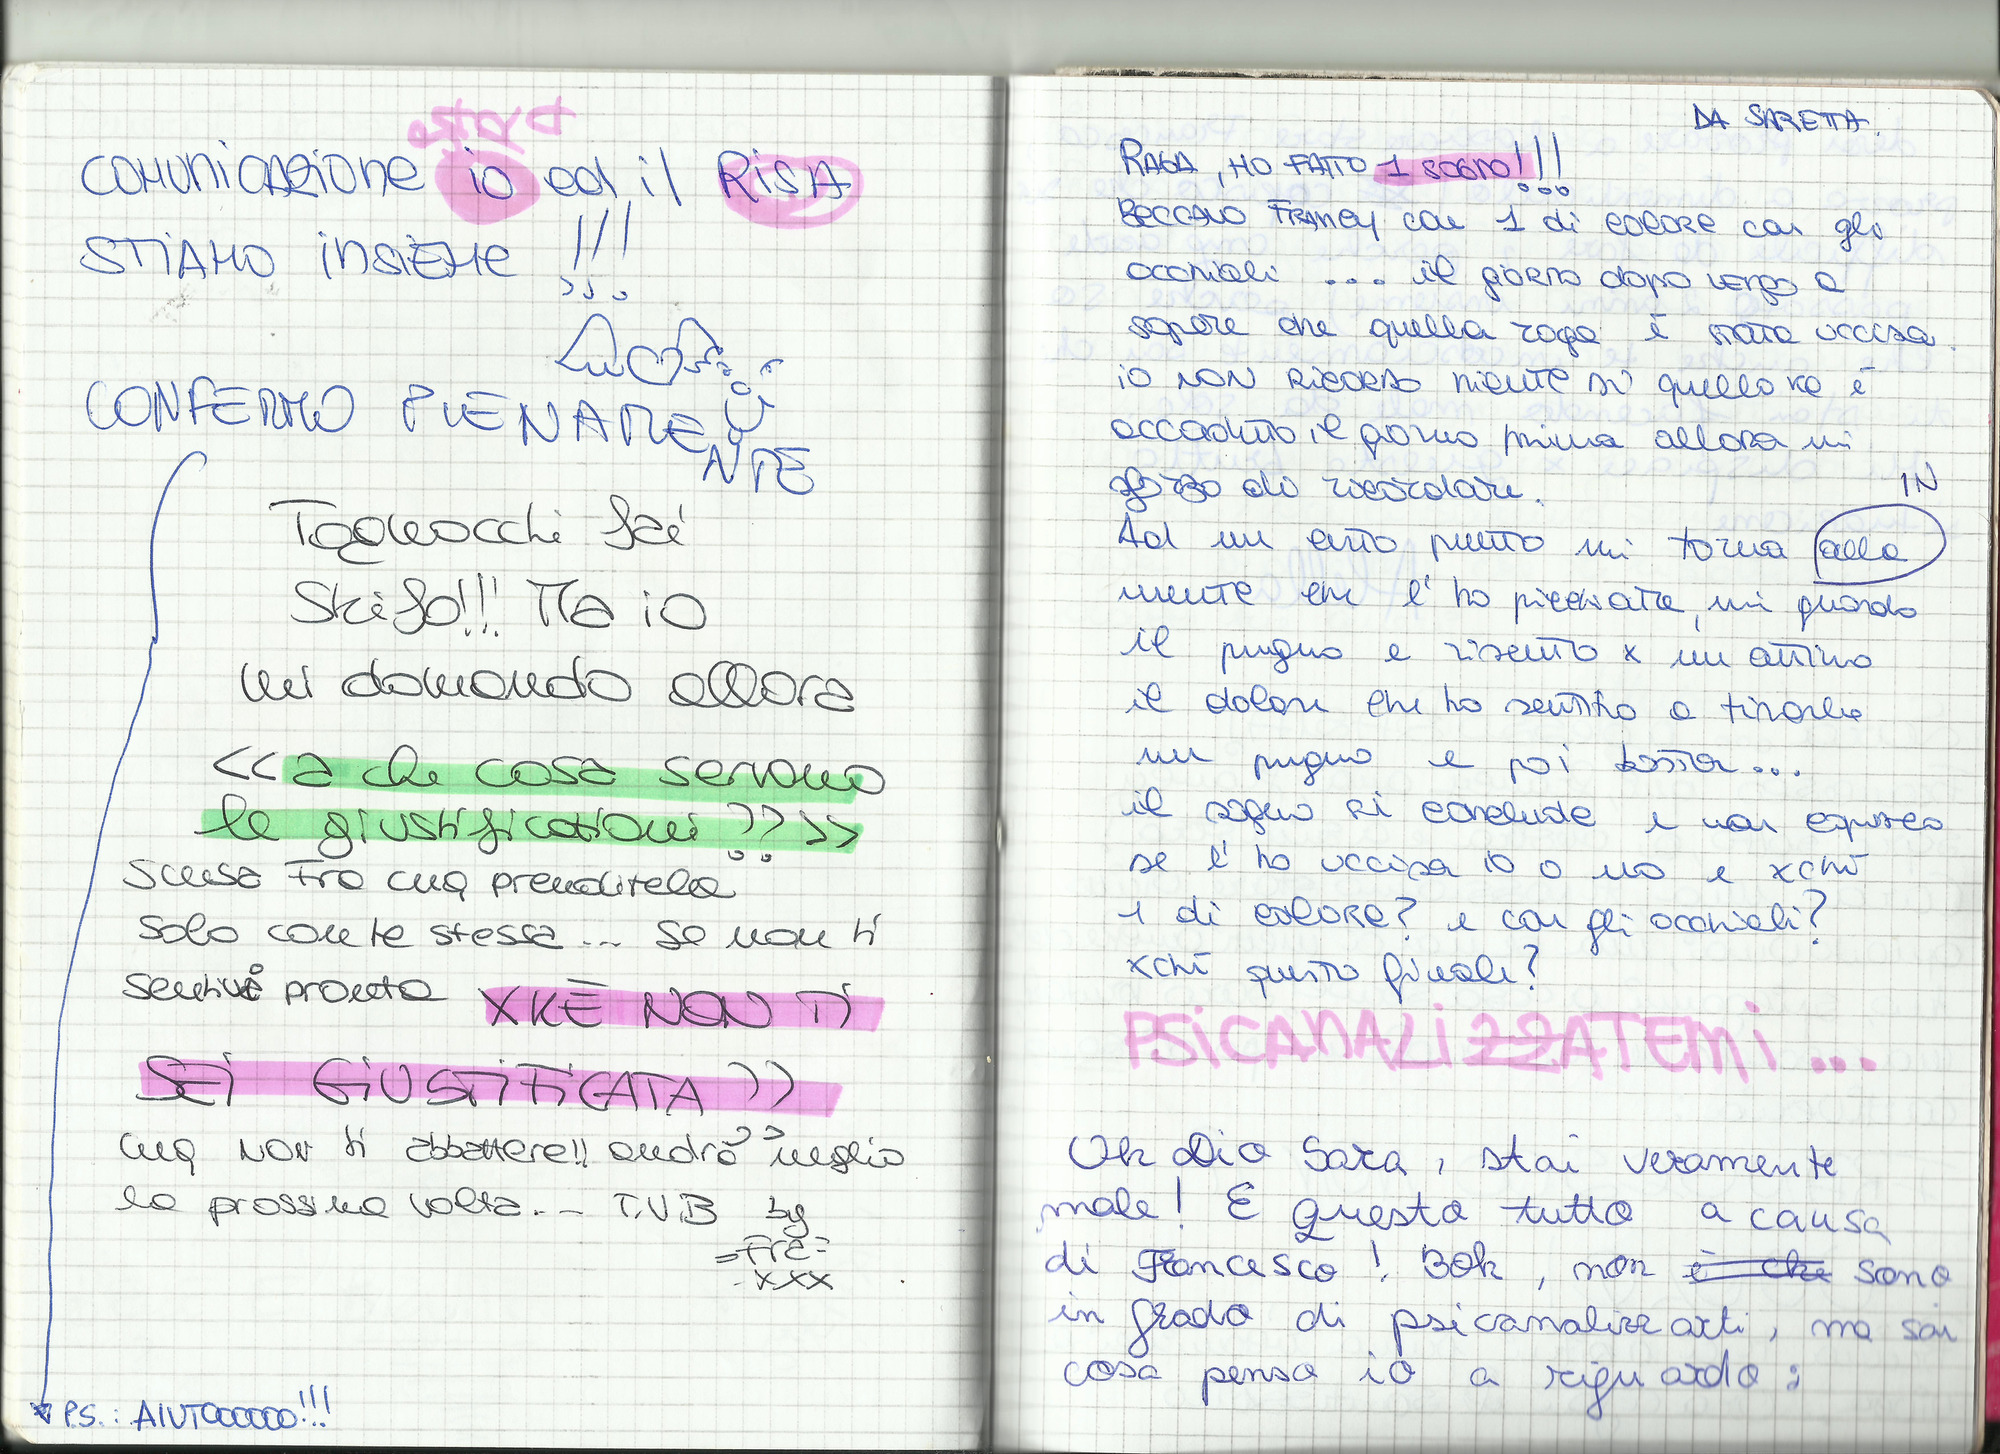 COMUNICAZIONE io ed il RISA
STIAMO INSIEME !!!
CONFERMO PIENAME
NTE
Tagliocchi fai
Skifo!!! Ma io
mi domando allora
<<a che cosa servono
le giustificazioni??>>
scusa Fra cmq prenditela
solo con te stessa... se non ti
sentivi pronta XKÈ NON TI
SEI GIUSTIFICATA??
cmq non ti abbattere!! andrà meglio
la prossima volta... T.V.B by
=Fra=
xxx
P.S.: AIUTOOOOO!!!
DA SARETTA.
RAGA, HO FATTO 1 SOGNO!!!
BECCAVO FRANCY con 1 di colore con gli
occhiali ... il giorno dopo vengo a
sapere che quella raga è stata uccisa.
io NON RICORDO niente su quello ke è
accaduto il giorno prima allora mi
sforzo di ricordare.
IN
Ad un certo punto mi torna alla
mente che l'ho picchiata, mi guardo
il pugno e risento x un attimo
il dolore che ho sentito a tirarle
un pugno e poi basta...
il sogno si conclude e non capisco
se l'ho uccisa io o no e xchè
1 di colore? e con gli occhiali?
xchè questo finale?
PSICANALIZZATEMI...
Oh Dio Sara, stai veramente
male! E questo tutto a causa
di Francesco! Boh, non è che sono
in grado di psicanalizzarti, ma sai
cosa penso io a riguardo: